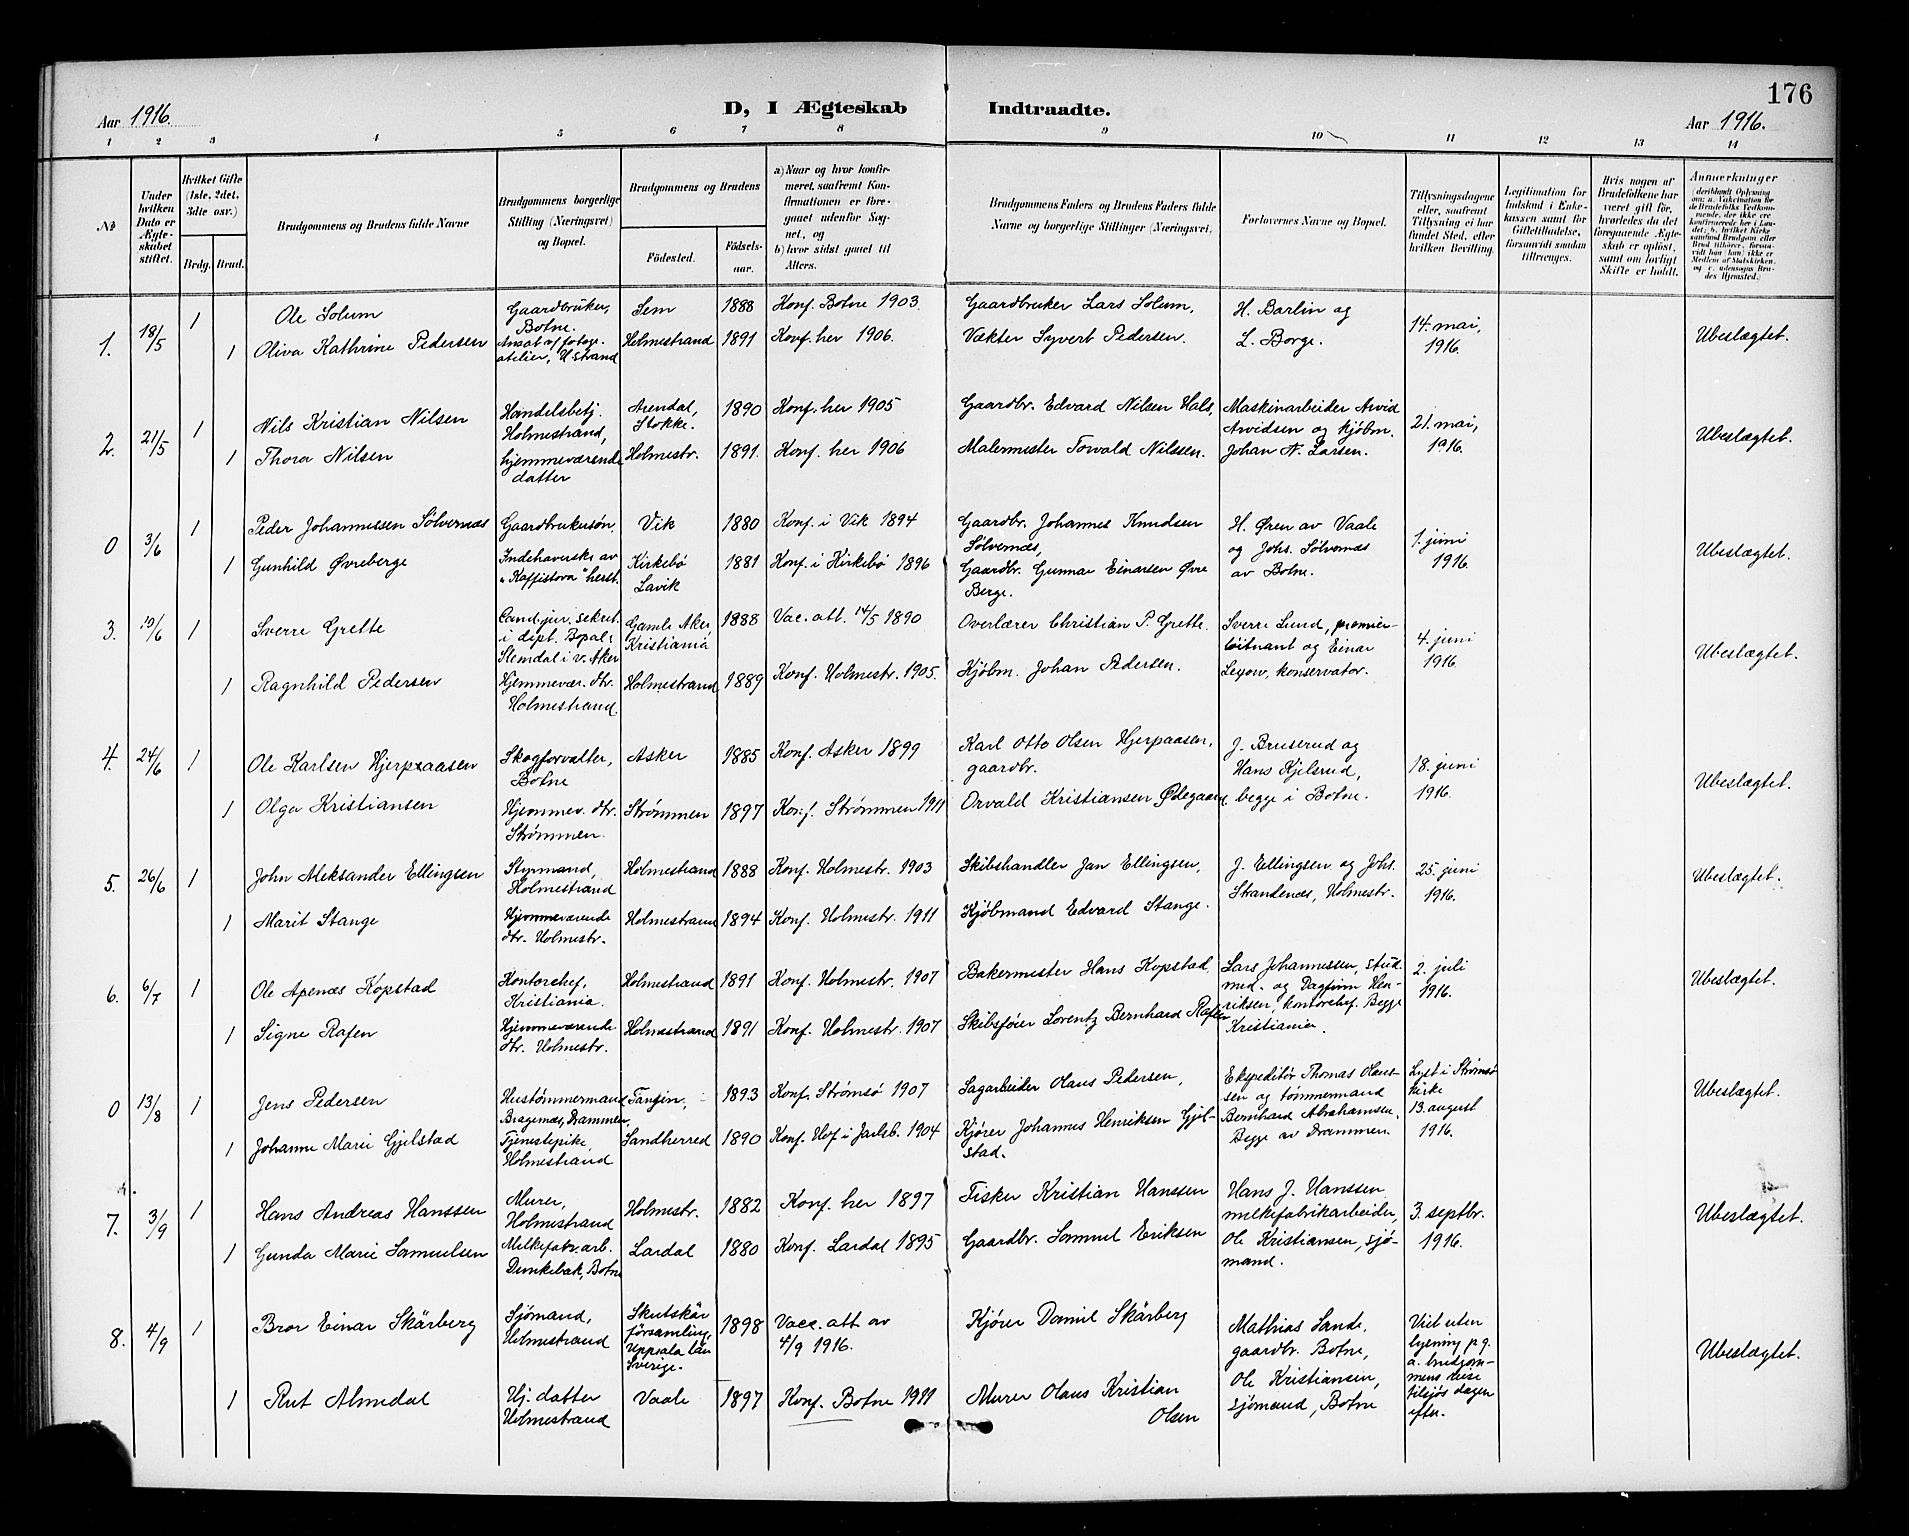 176
Aar 1916.
D, I Ægteskab
Indtraadte.
Aar 1916.
1 2 3 4 5 6 7 8 9 10 11 12 13 14
№
Under hvilken Dato er Ægteskabet stiftet.
Hvilket Gifte (1ste, 2det, 3dte osv.)
Brdg. Brud.
Brudgommens og Brudens fulde Navne
Brudgommens borgerlige Stilling (Næringsvei) og Bopæl.
Brudgommens og Brudens
Födested.
Födselsaar.
a) Naar og hvor konfirmeret, saafremt Konfirmationen er foregaaet udenfor Sognet, og
b) hvor sidst gaaet til Alters.
Brudgommens Faders og Brudens Faders fulde Navne og borgerlige Stillinger (Næringsvei)
Forlovernes Navne og Bopæl.
Tillysningsdagene eller, saafremt Tillysning ei har fundet Sted, efter hvilken Bevilling.
Legitimation for Indskud i Enkekassen samt for Giftetilladelse, forsaavidt saadan tiltrænges.
Hvis nogen af Brudefolkene har været gift för, hvorledes da det foregaaende Ægteskab er oplöst, samt om lovligt Skifte er holdt.
Anmærkninger
1. 18/5 1 Ole Solum Gaardbruker, Botne. Sem 1888 Konf. Botne 1903. Gaardbruker Lars Solum, H. Barlin og 14. mai, Ubeslægtet.
1 Oliva Kathrine Pedersen Ansat v/ fotogr. atelier, H.strand Holmestrand 1891 Konf. her 1906. Vækter Syvert Pedersen. L. Borge. 1916.
2. 21/5 1 Nils Kristian Nilsen Handelsbetj. Holmestrand, Arendal, Stokke. 1890 Konf. her 1905 Gaardbr. Edvard Nilsen Hals, Maskinarbeider Arvid Arvidsen og kjøbm. 21. mai, Ubeslægtet.
1 Thora Nilsen hjemmeværende datter Holmestr. 1891. Konf. her 1906 Malermester Torvald Nilssen. Johan A. Larsen. 1916.
0 3/6 1 Peder Johannessen Sølvernæs Gaardbrukersøn, Vik 1880 Konf. i Vik 1894 Gaardbr. Johannes Knudsen Sølvernæs, H. Øren av Vaale og Johs. Sølvernæs 1. juni Ubeslægtet.
1 Gunhild Øvreberge Indehaverske av "Kaffistova" herst. Kirkebø Lavik 1881 Konf. i Kirkebø 1896 Gaardbr. Gunnar Einarsen Øvre Berge. av Botne. 1916.
3. 10/6 1 Sverre Grette Cand. jur. sekret. i dept. Bopæl: Slemdal i v. Aker Gamle Aker Kristiania 1888 Vac. att. 14/5 1890 Overlærer Christian P. Grette. Sverre Lund, premierløitnant og Einar 4. juni Ubeslægtet.
1 Ragnhild Pedersen Hjemmevær. dtr. Holmestrand. Holmestrand 1889 Konf. Holmestr. 1905. Kjøbm. Johan Pedersen. Lexow, konservator. 1916.
4. 24/6 1 Ole Karlsen Hjerpaasen Skogforvalter, Botne Asker 1885 Konf. Asker 1899 Karl Otto Olsen Hjerpaasen, gaardbr. J. Bruserud og Hans Kjelsrud, 18. juni Ubeslægtet.
1 Olga Kristiansen Hjemmev. dtr. Strømmen. Strømmen 1897 Konf. Strømmen 1911 Orvald Kristiansen Ødegaard, begge i Botne. 1916.
5. 26/6 1 John Aleksander Ellingsen Styrmand, Holmestrand Holmestrand 1888 Konf. Holmestr. 1903 Skibshandler Jan Ellingsen, J. Ellingsen og Johs. 25. juni Ubeslægtet.
1 Marit Stange Hjemmeværende dtr. Holmestr. Holmestrand 1894 Konf. Holmestr. 1911 Kjøbmand Edvard Stange. Strandenæs, Holmestr. 1916.
6. 6/7 1 Ole Apenæs Kopstad Kontorchef, Kristiania. Holmestrand 1891 Konf. Holmestr. 1907 Bakermester Hans Kopstad. Lars Johannessen, stud. med. og Dagfinn Henriksen, kontorchef. Begge 2. juli Ubeslægtet.
1 Signe Rafen Hjemmeværende dtr. Holmestr. Holmestrand 1891 Konf. Holmestr. 1907 Skibsfører Lorentz Bernhard Rafen Kristiania. 1916.
0 13/8 1 Jens Pedersen Hustømmermand Bragenæs, Drammen, Tangen, 1893 Konf. Strømsø 1907 Sagarbeider Olaus Pedersen, Ekspeditør Thomas Olaussen og tømmermand Lyst i Strømsø kirke Ubeslægtet.
1 Johanne Marie Gjelstad Tjenestepike Holmestrand Sandherred 1890 Konf. Hof i Jarlsb. 1904 Kjører Johannes Henriksen Gjelstad. Bernhard Abrahamsen. Begge av Drammen. 13. august 1916.
7. 3/9 1 Hans Andreas Hanssen Murer, Holmestrand Holmestr. 1882 Konf. her 1897 Fisker Kristian Hanssen Hans J. Hanssen melkefabrikarbeider, 3. septbr. Ubeslægtet.
1 Gunda Marie Samuelsen Melkefabr. arb. Dunkebak, Botne Lardal 1880 Konf. Lardal 1895 Gaardbr. Samuel Eriksen Ole Kristiansen, sjømand. 1916.
8. 4/9 1 Bror Einar Skärberg Sjømand, Holmestrand Skutskär församling, Uppsala län Sverige. 1898 Vacc. att av 4/9 1916. Kjører Daniel Skärberg Mathias Sande, gaardbr. Botne, Viet uten lysning p.g. a. brudgommens reise Ubeslægtet.
1 Rut Almedal Hj. datter Holmestrand Vaale 1897 Konf. Botne 1911 Murer Olaus Kristian Olsen Ole Kristiansen, sjømand, Botne tilsjøs dagen efter.